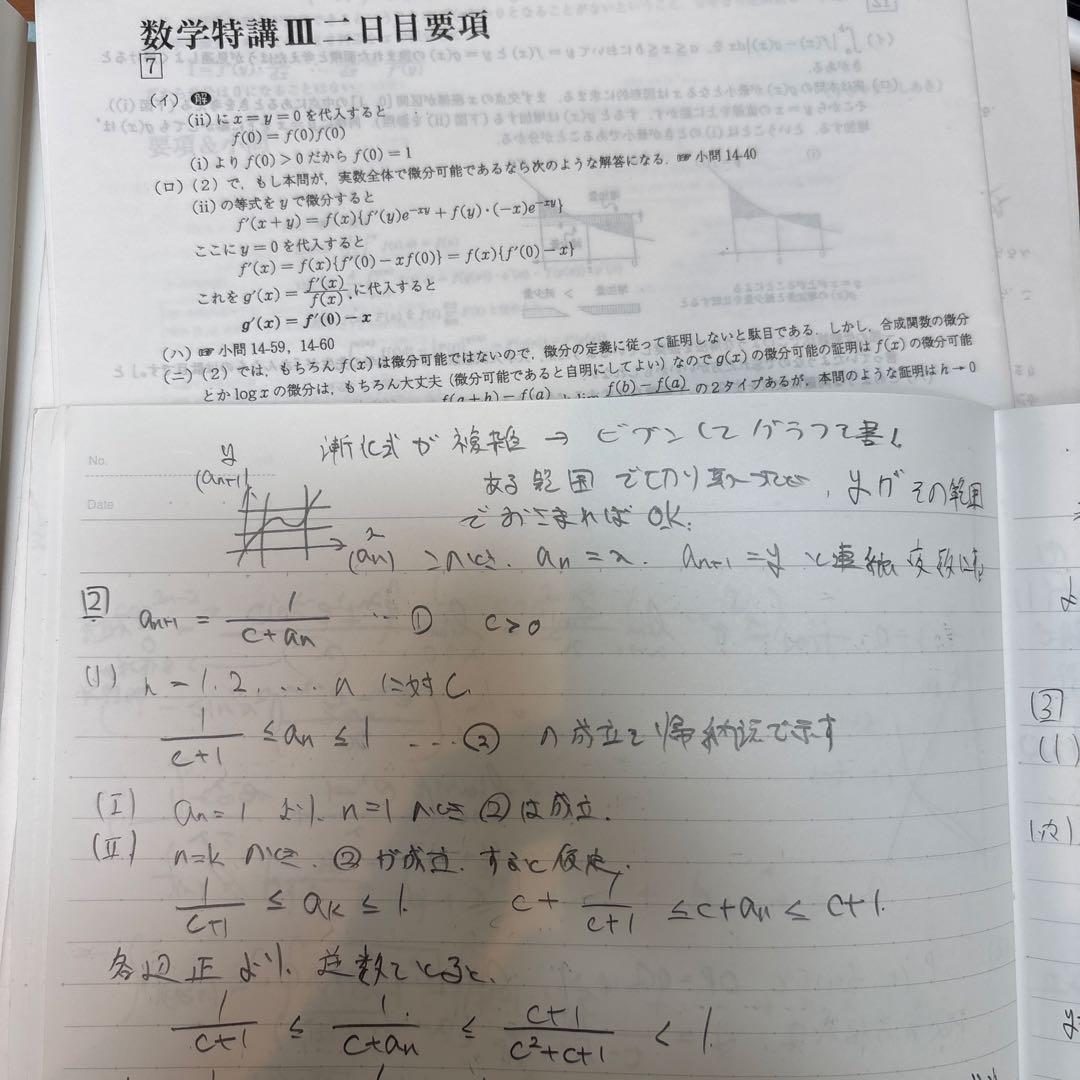 数学特講Ⅲ二日目要項
7
(イ) 解
(ii)にx=y=0を代入すると
f(0)=f(0)f(0)
(i)よりf(0)>0だからf(0)=1
(ロ)(2)で,もし本問が,実数全体で微分可能であるなら次のような解答になる.☞小問14-40
(ii)の等式をyで微分すると
f'(x+y)=f(x){f'(y)e^{-xy}+f(y)・(-x)e^{-xy}}
ここにy=0を代入すると
f'(x)=f(x){f'(0)-xf(0)}=f(x){f'(0)-x}
これをg'(x)=f'(x)/f(x).に代入すると
g'(x)=f'(0)-x
(ハ)☞小問14-59,14-60
(ニ)(2)では,もちろんf(x)は微分可能ではないので,微分の定義に従って証明しないと駄目である.しかし,合成関数の微分
とかlogxの微分は,もちろん大丈夫(微分可能であると自明にしてよい)なのでg(x)の微分可能の証明はf(x)の微分可能
f(a+h)-f(a) f(b)-f(a) の2タイプあるが,本問のような証明はh→0
No.
Date
漸化式が複雑→ビブンしてグラフて書く
y
(an+1)
ある範囲で切り取って,yがその範囲
でおさまればOK.
x
(an)
このとき. an=x. an+1=yと連続変数
2 an+1 = 1/(c+an) … ① c>0
(1) n=1.2.…. n に対し
1/(c+1) ≤ an ≤ 1 … ② の成立を帰納法で示す
(I) an=1 より n=1のとき②は成立.
(II) n=kのとき.②が成立すると仮定,
1/(c+1) ≤ ak ≤ 1. c+1/(c+1) ≤ c+an ≤ c+1.
各辺正より.逆数をとると.
1/(c+1) ≤ 1/(c+an) ≤ (c+1)/(c²+c+1) < 1.
3
(1)